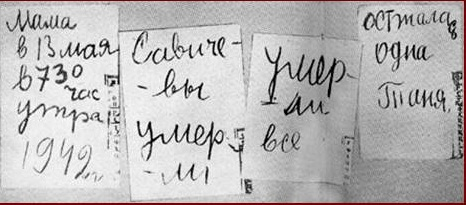 Мама
в 13 мая
в 730
час
утра
1942 г
Савиче-
-вы
умер-
-ли
Умер-
-ли
все
осталась
одна
Таня.